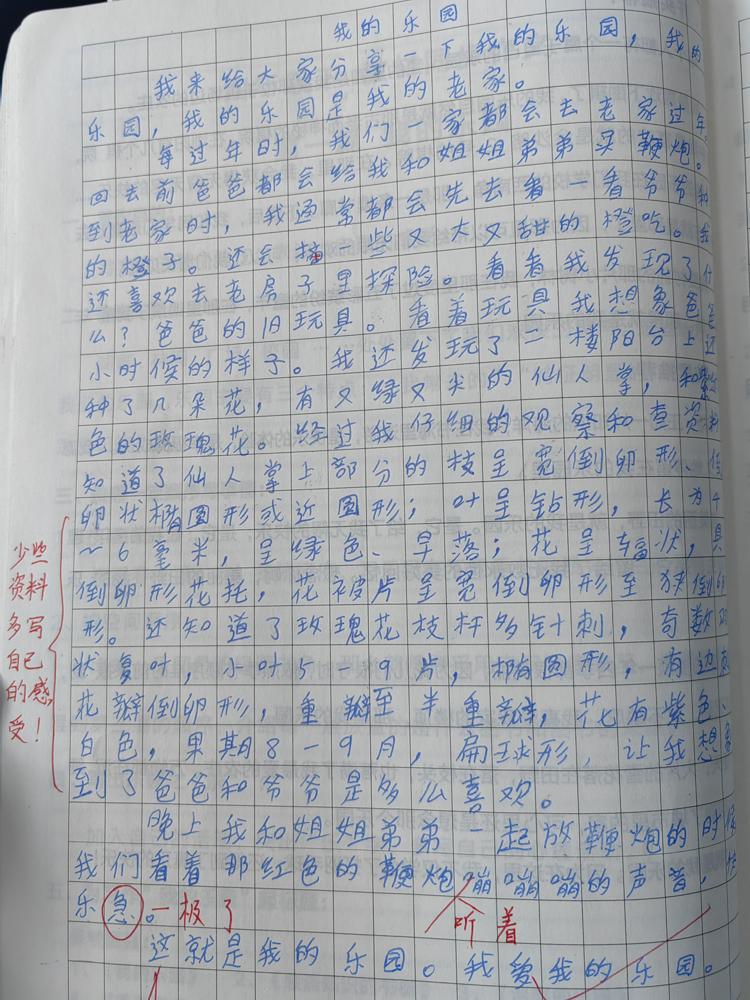 我的乐园
我来给大家分享一下我的乐园，我的
乐园，我的乐园是我的老家。
每过年时，我们一家都会去老家过年
回去前爸爸都会给我和姐姐弟弟买鞭炮。
到老家时，我通常都会先去看一看爷爷和
的橙子。还会摘一些又大又甜的橙吃。我
还喜欢去老房子里探险。看看我发现了什
么？爸爸的旧玩具。看着玩具我想象爸爸
小时候的样子。我还发玩了二楼阳台上还
种了几朵花，有又绿又尖的仙人掌，和紫
色的玫瑰花。经过我仔细的观察和查资料
知道了仙人掌上部分的枝呈宽倒卵形、倒
卵状椭圆形或近圆形；叶呈钻形，长为4
~6毫米，呈绿色、早落；花呈辐状，具
倒卵形花托，花被片呈宽倒卵形至狭倒卵
形。还知道了玫瑰花枝杆多针刺，奇数羽
状复叶，小叶5-9片，椭圆形，有边刺
花瓣倒卵形，重瓣至半重瓣，花有紫色、
白色，果期8-9月，扁球形，让我想象
到了爸爸和爷爷是多么喜欢。
晚上我和姐姐弟弟一起放鞭炮的时候
我们看着那红色的鞭炮嘣嘣嘣的声音，快
乐急。一极了
听着
这就是我的乐园。我爱我的乐园。
少些
资料
多写
自己
的感
受！